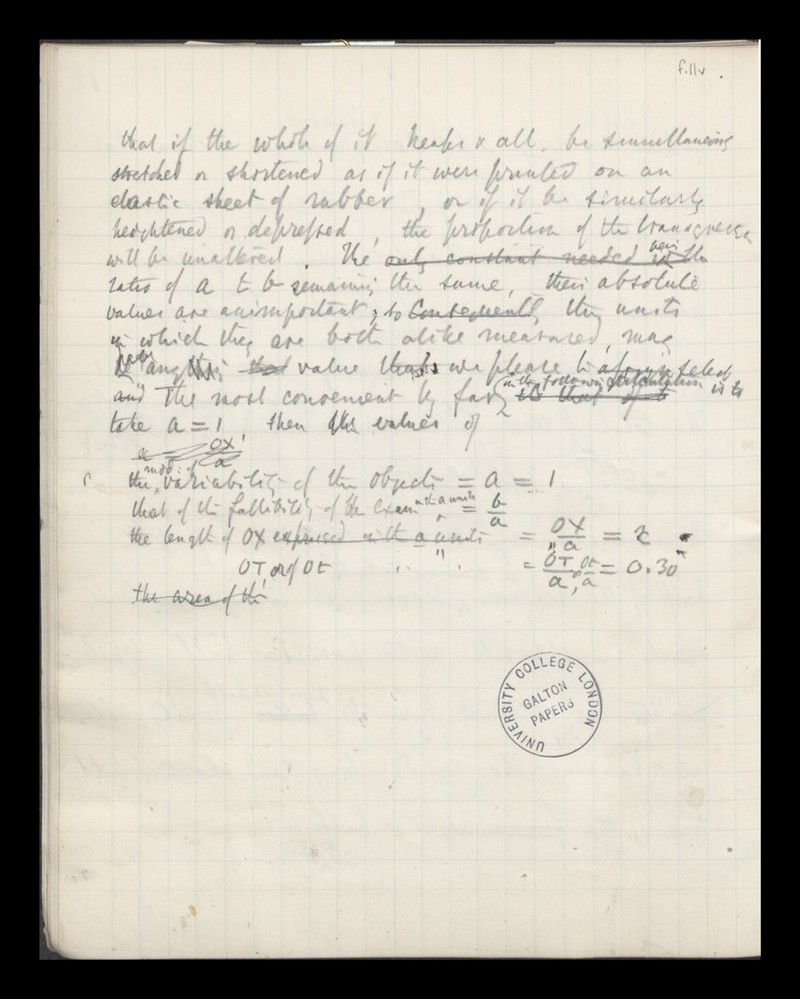 f.11v.
that if the whole of it heaps & all, be simultaneously
stretched or shortened as if it were printed on an
elastic sheet of rubber, or if it be similarly
heightened or depressed, the proportion of the
will be unaltered. The only constant needed is the
ratio of a to b remaining the same, their absolute
values are unimportant; so Consequently the units
in which they are both alike measured, may
be any value that we please to select
and the most convenient by far in the following is to
take a = 1 then the values of
OX
a
mod: of
the variability of the objects = a = 1
that of the fallibility of the Exam in the a units = b/a
the length of OX expressed in the a units = OX/a = x
OT, or of Ot " = OT/a, Ot/a = 0.30
the area of the
UNIVERSITY COLLEGE LONDON
GALTON
PAPERS